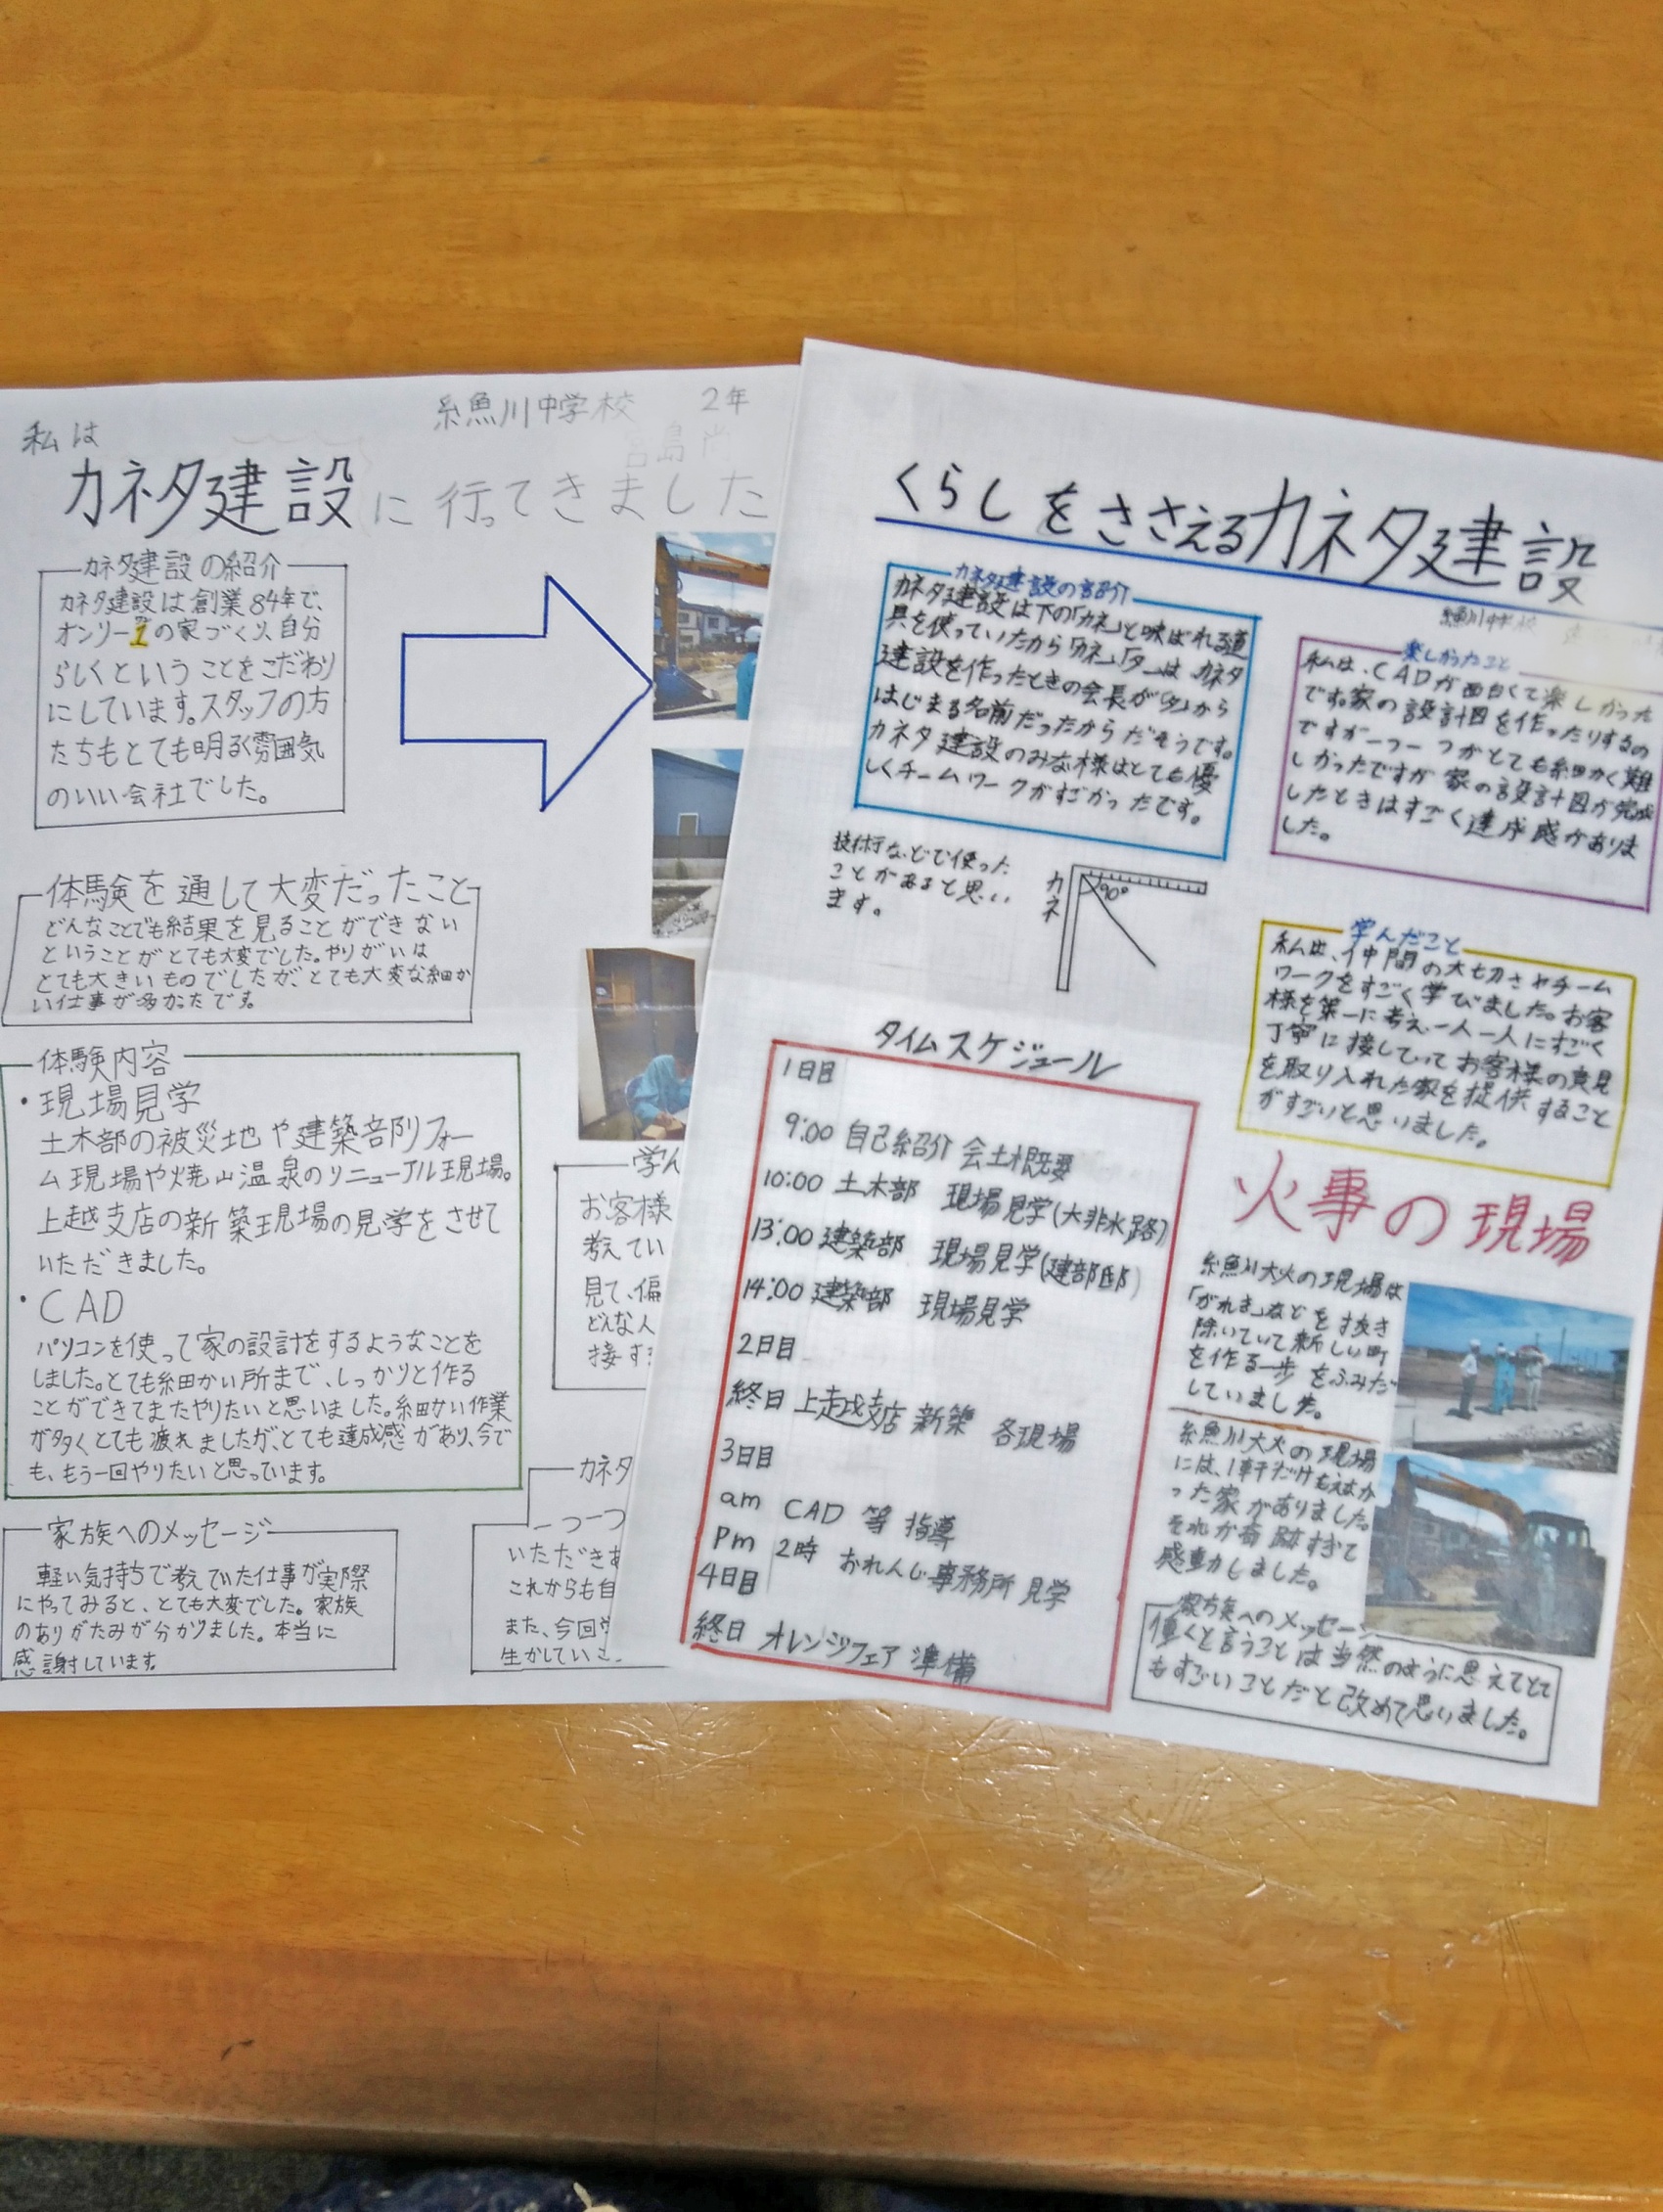 糸魚川中学校 2年
私は
カネタ建設に行ってきました
カネタ建設の紹介
カネタ建設は創業84年で、
オンリー1の家づくり、自分
らしくということをこだわり
にしています。スタッフの方
たちもとても明るく雰囲気
のいい会社でした。
体験を通して大変だったこと
どんなことでも結果を見ることができない
ということがとても大変でした。やりがいは
とても大きいものでしたが、とても大変な細か
い仕事が多かったです。
体験内容
・現場見学
土木部の被災地や建築部リフォー
ム現場や焼山温泉のリニューアル現場。
上越支店の新築現場の見学をさせて
いただきました。
・CAD
パソコンを使って家の設計をするようなことを
しました。とても細かい所まで、しっかりと作る
ことができてまたやりたいと思いました。細かい作業
が多くとても疲れましたが、とても達成感があり、今で
も、もう一回やりたいと思っています。
家族へのメッセージ
軽い気持ちで考えていた仕事が実際
にやってみると、とても大変でした。家族
のありがたみが分かりました。本当に
感謝しています。
学ん
お客様
考えてい
見て、偏
どんな人
接す
カネタ
一つ一つ
いただきあ
これからも自
また、今回
生かしていこ
くらしをささえるカネタ建設
糸魚川中学校
カネタ建設の紹介
カネタ建設は下の「カネ」と呼ばれる道
具を使っていたから「カネ」「タ」は、カネタ
建設を作ったときの会長が「タ」から
はじまる名前だったからだそうです。
カネタ建設のみな様はとても優
しくチームワークがすごかったです。
技術などで使った
ことがあると思い
ます。
カネ
90°
楽しかったこと
私は、CADが面白くて楽しかった
です。家の設計図を作ったりするの
ですが一つ一つがとても細かく難
しかったですが家の設計図が完成
したときはすごく達成感がありま
した。
学んだこと
私は、仲間の大切さやチーム
ワークをすごく学びました。お客
様を第一に考え一人一人にすごく
丁寧に接していってお客様の意見
を取り入れた家を提供すること
がすごいと思いました。
タイムスケジュール
1日目
9:00 自己紹介 会社概要
10:00 土木部 現場見学(大非水路)
13:00 建築部 現場見学(建部邸)
14:00 建築部 現場見学
2日目
終日 上越支店 新築 各現場
3日目
am CAD 等 指導
Pm 2時 おれんじ事務所 見学
4日目
終日 オレンジフェア 準備
火事の現場
糸魚川大火の現場は
「がれき」などを抜き
除いていて新しい町
を作る一歩をふみだ
していました。
糸魚川大火の現場
には、1軒だけもえなか
った家がありました。
それが奇跡すぎて
感動しました。
家族へのメッセージ
働くと言うことは当然のように思えてとて
もすごいことだと改めて思いました。